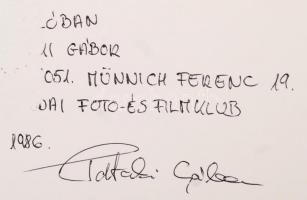 ÓBAN
II GÁBOR
1051. MÜNNICH FERENC 19.
VAI FOTO-ÉS FILMKLUB
1986.
Pataki Gábor